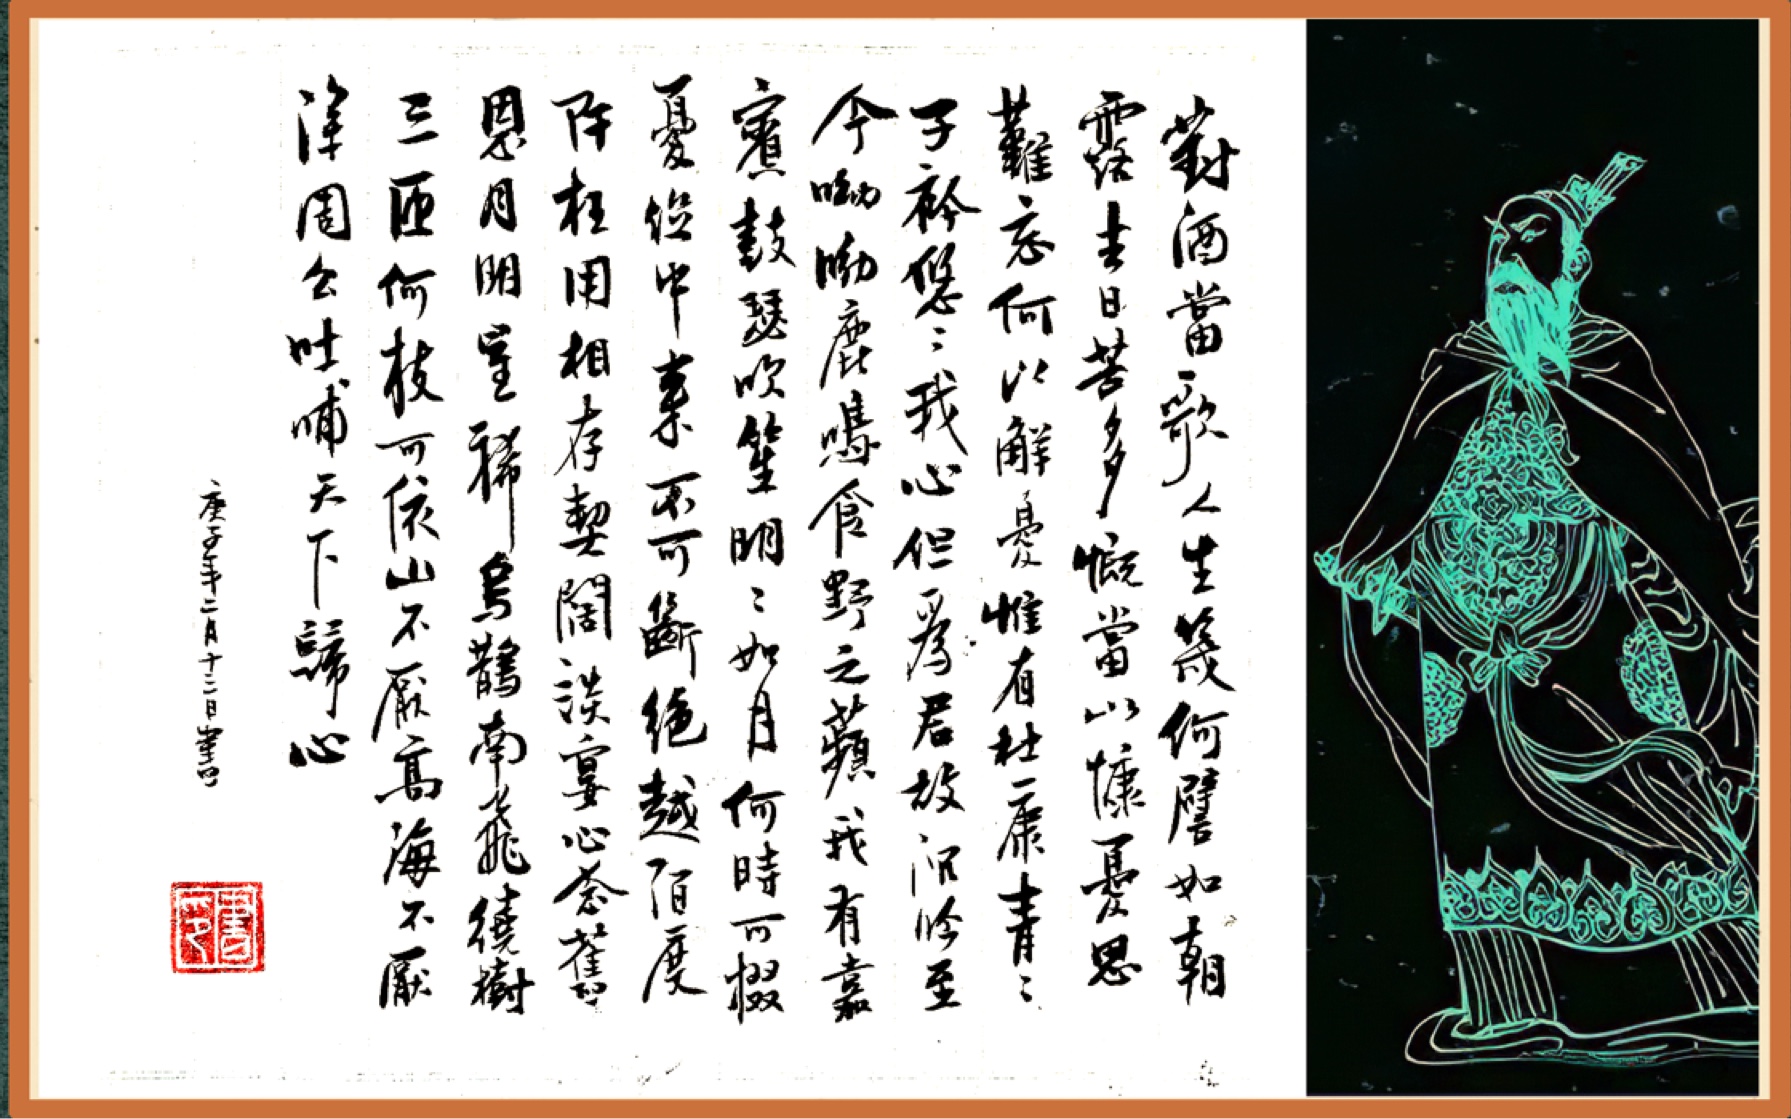 對酒當歌人生幾何譬如朝
露去日苦多慨當以慷憂思
難忘何以解憂惟有杜康青〻
子衿悠〻我心但爲君故沉吟至
今呦呦鹿鳴食野之蘋我有嘉
賓鼓瑟吹笙明〻如月何時可掇
憂從中來不可斷絕越陌度
阡枉用相存契闊談宴心念舊
恩月明星稀烏鵲南飛繞樹
三匝何枝可依山不厭高海不厭
深周公吐哺天下歸心
庚子年二月十二日書
書印